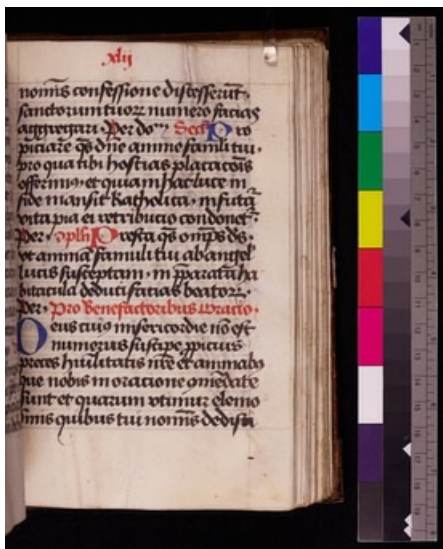 xlij
nomīs confessione discesserūt·
sanctorum tuoꝝ numero facias
aggregari· Per do Sec Pro
piciare qs dne anime famuli tui·
pro qua tibi hostias placacōis
offerimꝰ· et quia in hac luce in
fide mansit katholica· in futā
vita pia ei retributio condonet·
Per· 9plē Presta qs omps ds·
vt animā famuli tui ab angel'
lucis susceptam· in pparata ha
bitacula deduci facias beatoꝝ·
Per· Pro benefactoribus oracio·
Deus cuiꝰ misericordie nō est
numerus suscipe ppicius
preces huīlitatis nr̄e et animabꝰ
que nobis in oracione 9mēdate
sunt et quarum vtimur elemo
sinis quibus tui nomīs dedisti